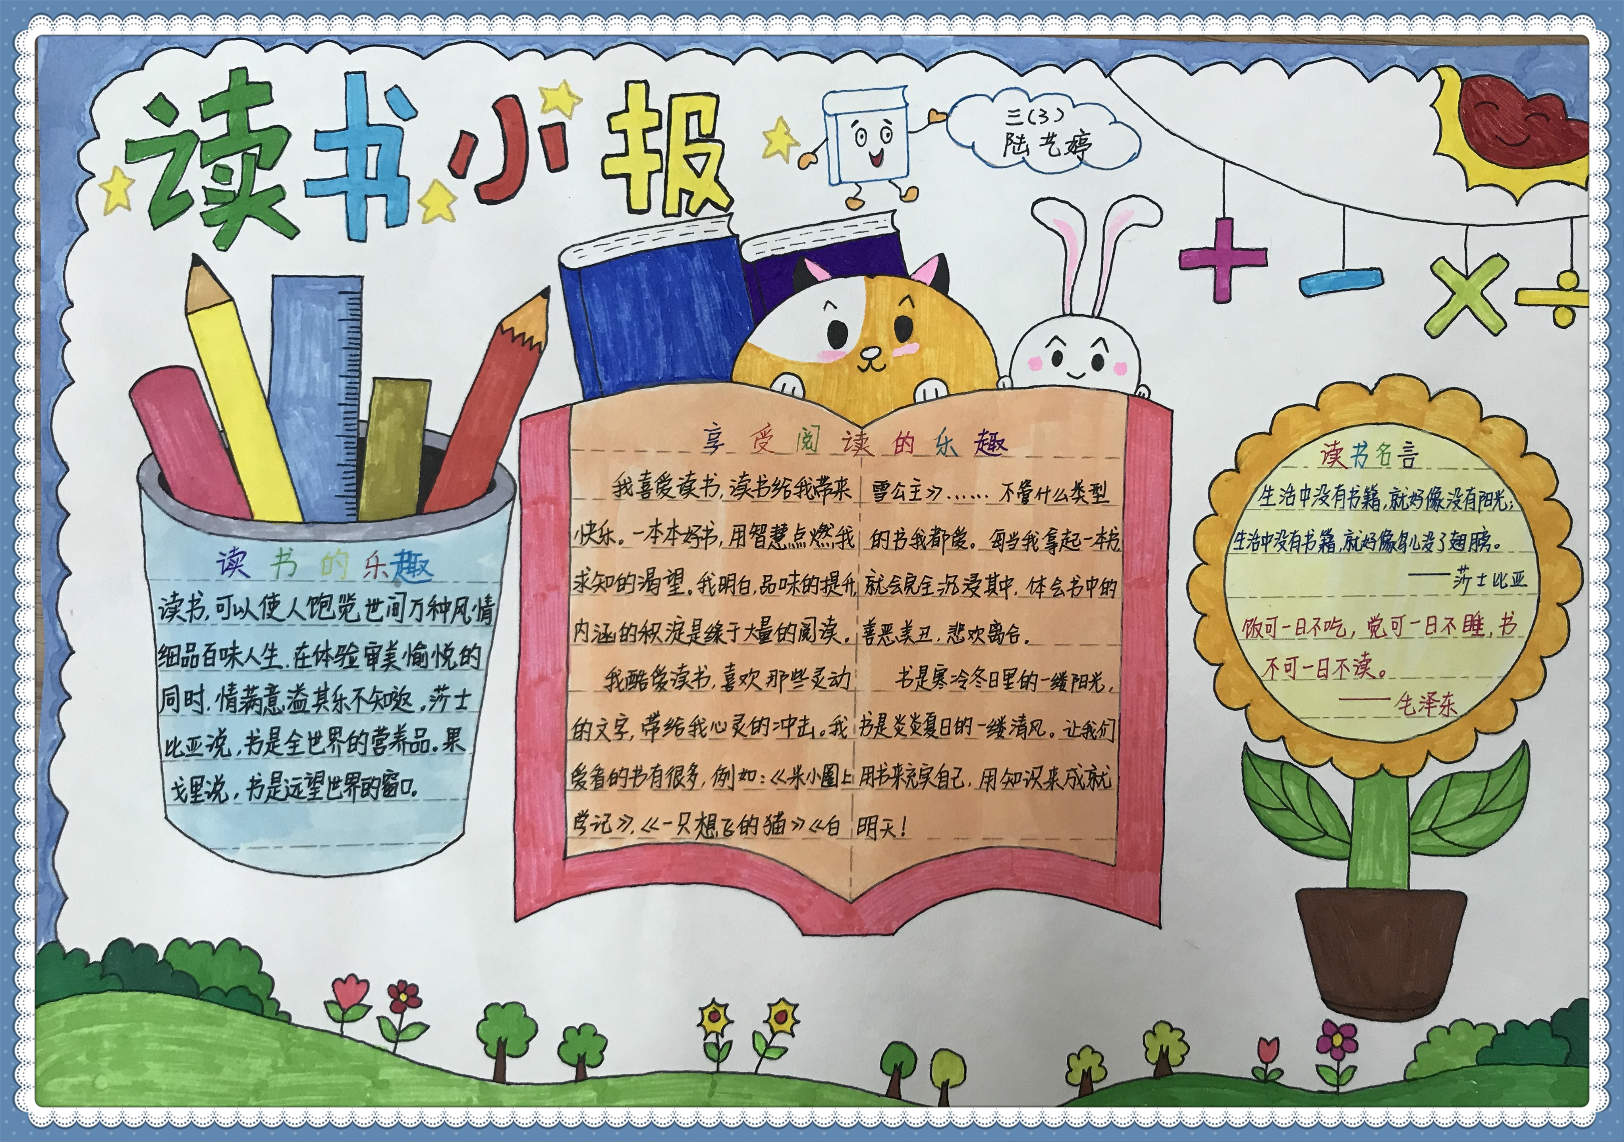 读书小报
三(3)
陆艺婷
读书的乐趣
读书,可以使人饱览世间万种风情
细品百味人生.在体验审美愉悦的
同时.情满意溢其乐不知返。莎士
比亚说,书是全世界的营养品。果
戈里说,书是远望世界的窗口。
享受阅读的乐趣
我喜爱读书,读书给我带来
快乐。一本本好书,用智慧点燃我
求知的渴望。我明白,品味的提升
内涵的积淀是缘于大量的阅读。
我酷爱读书,喜欢那些灵动
的文字,带给我心灵的冲击。我
爱看的书有很多,例如:《米小圈上
学记》.《一只想飞的猫》《白
雪公主》……不管什么类型
的书我都爱。每当我拿起一本书
就会完全沉浸其中.体会书中的
善恶美丑,悲欢离合。
书是寒冷冬日里的一缕阳光,
书是炎炎夏日的一缕清风。让我们
用书来充实自己,用知识来成就
明天!
读书名言
生活中没有书籍,就好像没有阳光;
生活中没有书籍,就好像鸟儿没了翅膀。
——莎士比亚
饭可一日不吃,觉可一日不睡,书
不可一日不读。
——毛泽东